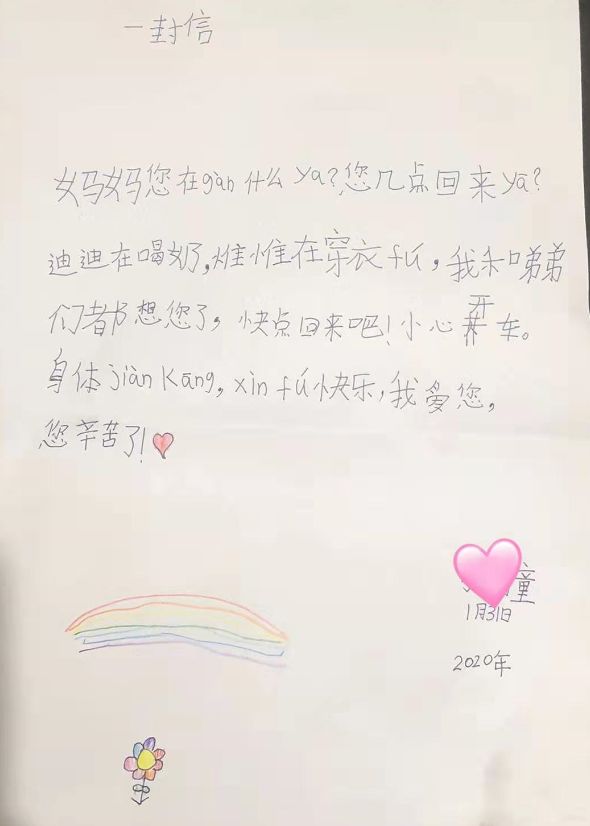 一封信
妈妈您在gàn什么ya?您几点回来yā?
迪迪在喝奶,惟惟在穿衣fú,我和弟弟
们都想您了,快点回来吧!小心开车。
身体jiàn Kāng,xìn fú快乐,我爱您,
您辛苦了!
童
1月31日
2020年